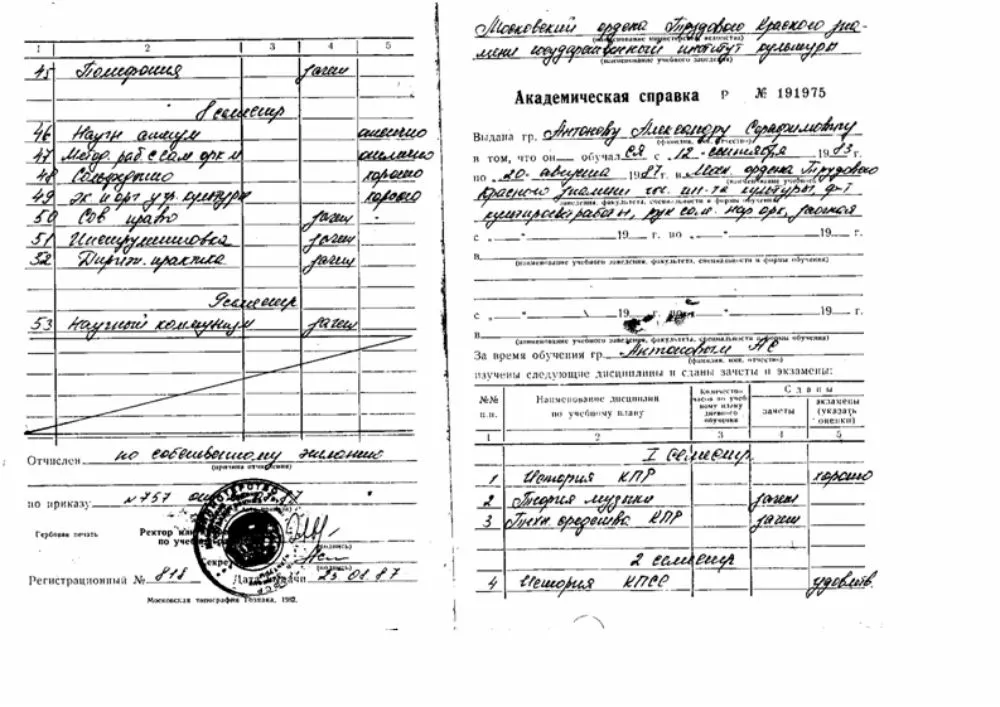 1 2 3 4 5
45 Полифония зачет
8 семестр
46 Научн атеизм отлично
47 Метод. раб с сам орк м отлично
48 Сольфеджио хорошо
49 эк и орг упр. культуры хорошо
50 Сов право зачет
51 Инструментовка зачет
52 Дириж. практика зачет
9 семестр
53 Научный коммунизм зачет
Отчислен по собственному желанию
(причина отчисления)
по приказу №757
Гербовая печать
Ректор
по учеб
Секре
(подпись)
Регистрационный № 818 Дата выдачи 87
Московская типография Гознака, 1982.
Московский ордена Трудового Красного зна-
(наименование министерства, ведомства)
мени государственный институт культуры
(наименование учебного заведения)
Академическая справка Р № 191975
Выдана гр. Антонову Александру Серафимовичу
(фамилия, имя, отчество)
в том, что он обучался с „12" сентября 1983 г.
по „20" августа 1987 г. в Мос. ордена Трудового
(наименование учебного
Красного знамени гос. ин-та культуры, ф-т
заведения, факультета, специальности и формы обучения)
культпросветработы, рук сам. нар орк, заочная
с „—" 19— г. по „—" 19— г.
в
(наименование учебного заведения, факультета, специальности и формы обучения)
с „—" 19— г. по „—" 19— г.
в
(наименование учебного заведения, факультета, специальности и формы обучения)
За время обучения гр. Антоновым АС
(фамилия, имя, отчество)
изучены следующие дисциплины и сданы зачеты и экзамены:
№№ п.п. Наименование дисциплин по учебному плану Количество часов по учебному плану дневного обучения Сданы
зачеты экзамены (указать оценки)
1 2 3 4 5
I семестр
1 История КПР хорошо
2 Теория музыки зачет
3 Техн средства КПР зачет
2 семестр
4 История КПСС удовлетв.